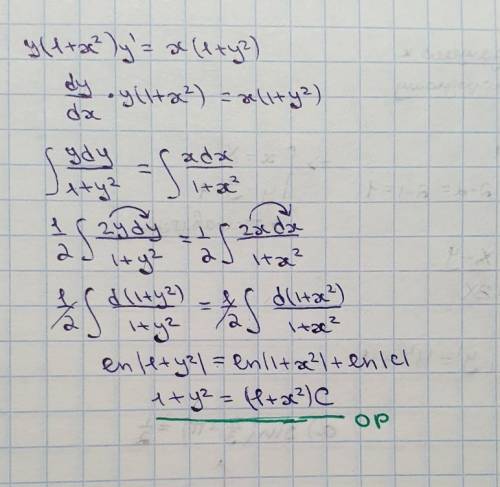 y(1+x²)y' = x(1+y²)
dy/dx · y(1+x²) = x(1+y²)
∫ ydy/1+y² = ∫ xdx/1+x²
1/2 ∫ 2ydy/1+y² = 1/2 ∫ 2xdx/1+x²
1/2 ∫ d(1+y²)/1+y² = 1/2 ∫ d(1+x²)/1+x²
ln|1+y²| = ln|1+x²| + ln|C|
1+y² = (1+x²)C
ОР